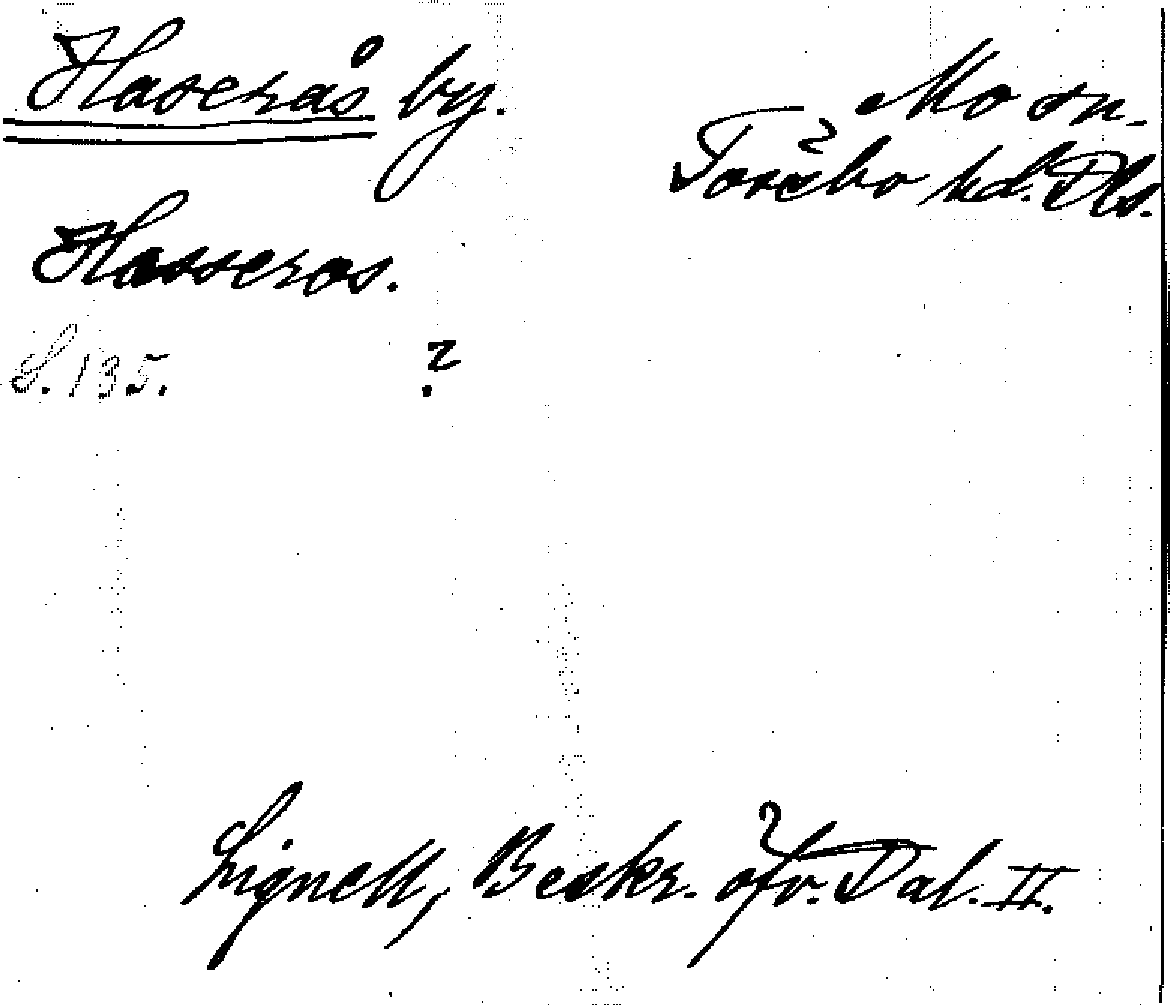 Haserås by.
Mo sn.
Tössbo hd. Dls.
Hasseros.
S. 135. ?
Lignell, Beskr. öfv. Dal. II.